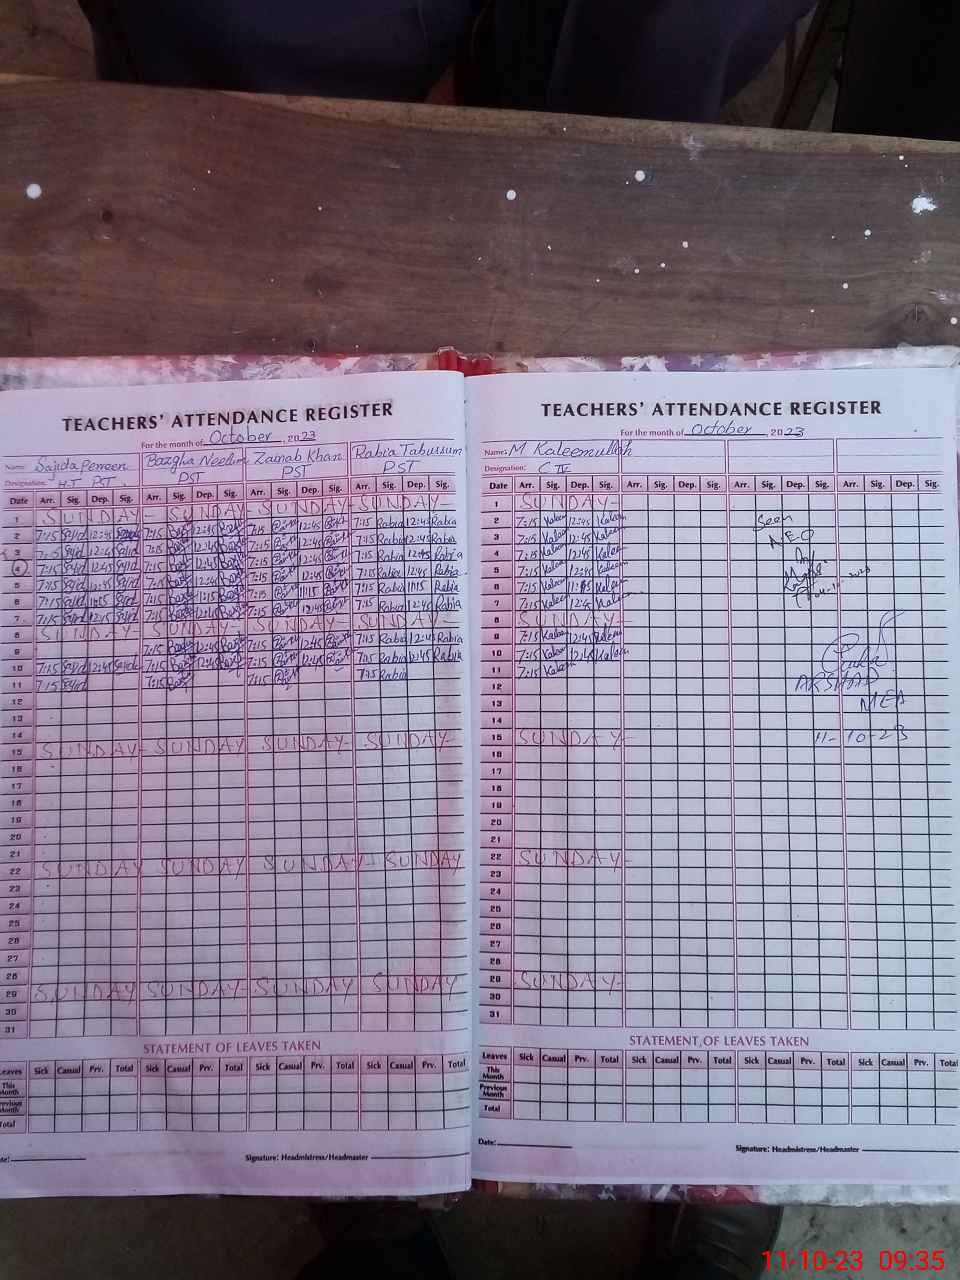 TEACHERS' ATTENDANCE REGISTER
For the month of October, 2023
Name: Sajida Perveen Bazgha Neelum Zainab Khan Rabia Tabussum
Designation: H.T PST. PST PST PST
Date Arr. Sig. Dep. Sig. Arr. Sig. Dep. Sig. Arr. Sig. Dep. Sig. Arr. Sig. Dep. Sig.
1 SUNDAY - SUNDAY - SUNDAY - SUNDAY -
2 7:15 12:45 7:15 12:45 7:15 12:45 7:15 Rabia 12:45 Rabia
3 7:15 12:45 7:15 12:45 7:15 12:45 7:15 Rabia 12:45 Rabia
4 7:15 12:45 7:15 12:45 7:15 12:45 7:15 Rabia 12:45 Rabia
5 7:15 12:45 7:15 12:45 7:15 12:45 7:15 Rabia 12:45 Rabia
6 7:15 11:15 7:15 11:15 7:15 11:15 7:15 Rabia 11:15 Rabia
7 7:15 12:45 7:15 12:45 7:15 12:45 7:15 Rabia 12:45 Rabia
8 SUNDAY - SUNDAY - SUNDAY - SUNDAY -
9 7:15 12:45 7:15 12:45 7:15 12:45 7:15 Rabia 12:45 Rabia
10 7:15 12:45 7:15 12:45 7:15 12:45 7:15 Rabia 12:45 Rabia
11 7:15 7:15 7:15 7:15 Rabia
12
13
14
15 SUNDAY - SUNDAY SUNDAY - SUNDAY -
16
17
18
19
20
21
22 SUNDAY SUNDAY SUNDAY - SUNDAY
23
24
25
26
27
28
29 SUNDAY SUNDAY - SUNDAY SUNDAY
30
31
STATEMENT OF LEAVES TAKEN
Leaves Sick Casual Prv. Total Sick Casual Prv. Total Sick Casual Prv. Total Sick Casual Prv. Total
This Month
Previous Month
Total
Signature: Headmistress/Headmaster
TEACHERS' ATTENDANCE REGISTER
For the month of October, 2023
Name: M Kaleemullah
Designation: C IV
Date Arr. Sig. Dep. Sig. Arr. Sig. Dep. Sig. Arr. Sig. Dep. Sig. Arr. Sig. Dep. Sig.
1 SUNDAY -
2 7:15 Kaleem 12:45 Kaleem
3 7:15 Kaleem 12:45 Kaleem
4 7:15 Kaleem 12:45 Kaleem
5 7:15 Kaleem 12:45 Kaleem
6 7:15 Kaleem 11:15 Kaleem
7 7:15 Kaleem 12:45 Kaleem
8 SUNDAY -
9 7:15 Kaleem 12:45 Kaleem
10 7:15 Kaleem 12:45 Kaleem
11 7:15 Kaleem
12
13
14
15 SUNDAY -
16
17
18
19
20
21
22 SUNDAY -
23
24
25
26
27
28
29 SUNDAY -
30
31
Seen
ARSHAD
MEA
11-10-23
STATEMENT OF LEAVES TAKEN
Leaves Sick Casual Prv. Total Sick Casual Prv. Total Sick Casual Prv. Total Sick Casual Prv. Total
This Month
Previous Month
Total
Date:
Signature: Headmistress/Headmaster
11-10-23 09:35